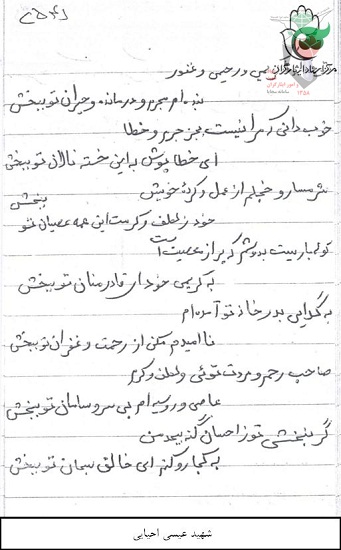 مرکز اسناد ایثارگران
رحیمی و رحمن و غفور
بنده ام مجرم و درمانده و حیران تو ببخش
خوب دانی که مرا نیست بجز جرم و خطا
ای خطا پوش به این خسته نالان تو ببخش
شرمسار و خجلم از عمل و کرده خویش
خود ز لطف و کرمت این همه عصیان تو ببخش
کوله باریست بدوشم که پر از معصیت است
به کریمی خود ای قادر منان تو ببخش
به گدایی به در خانه تو آمده ام
نا امیدم مکن از رحمت و غفران تو ببخش
صاحب رحم و مروت توئی و لطف و کرم
عاصی و روسیه ام بی سر و سامان تو ببخش
گر نبخشی تو ز احسان گنه بیحد من
به کجا رو کنم ای خالق سبحان تو ببخش
شهید عیسی احیایی